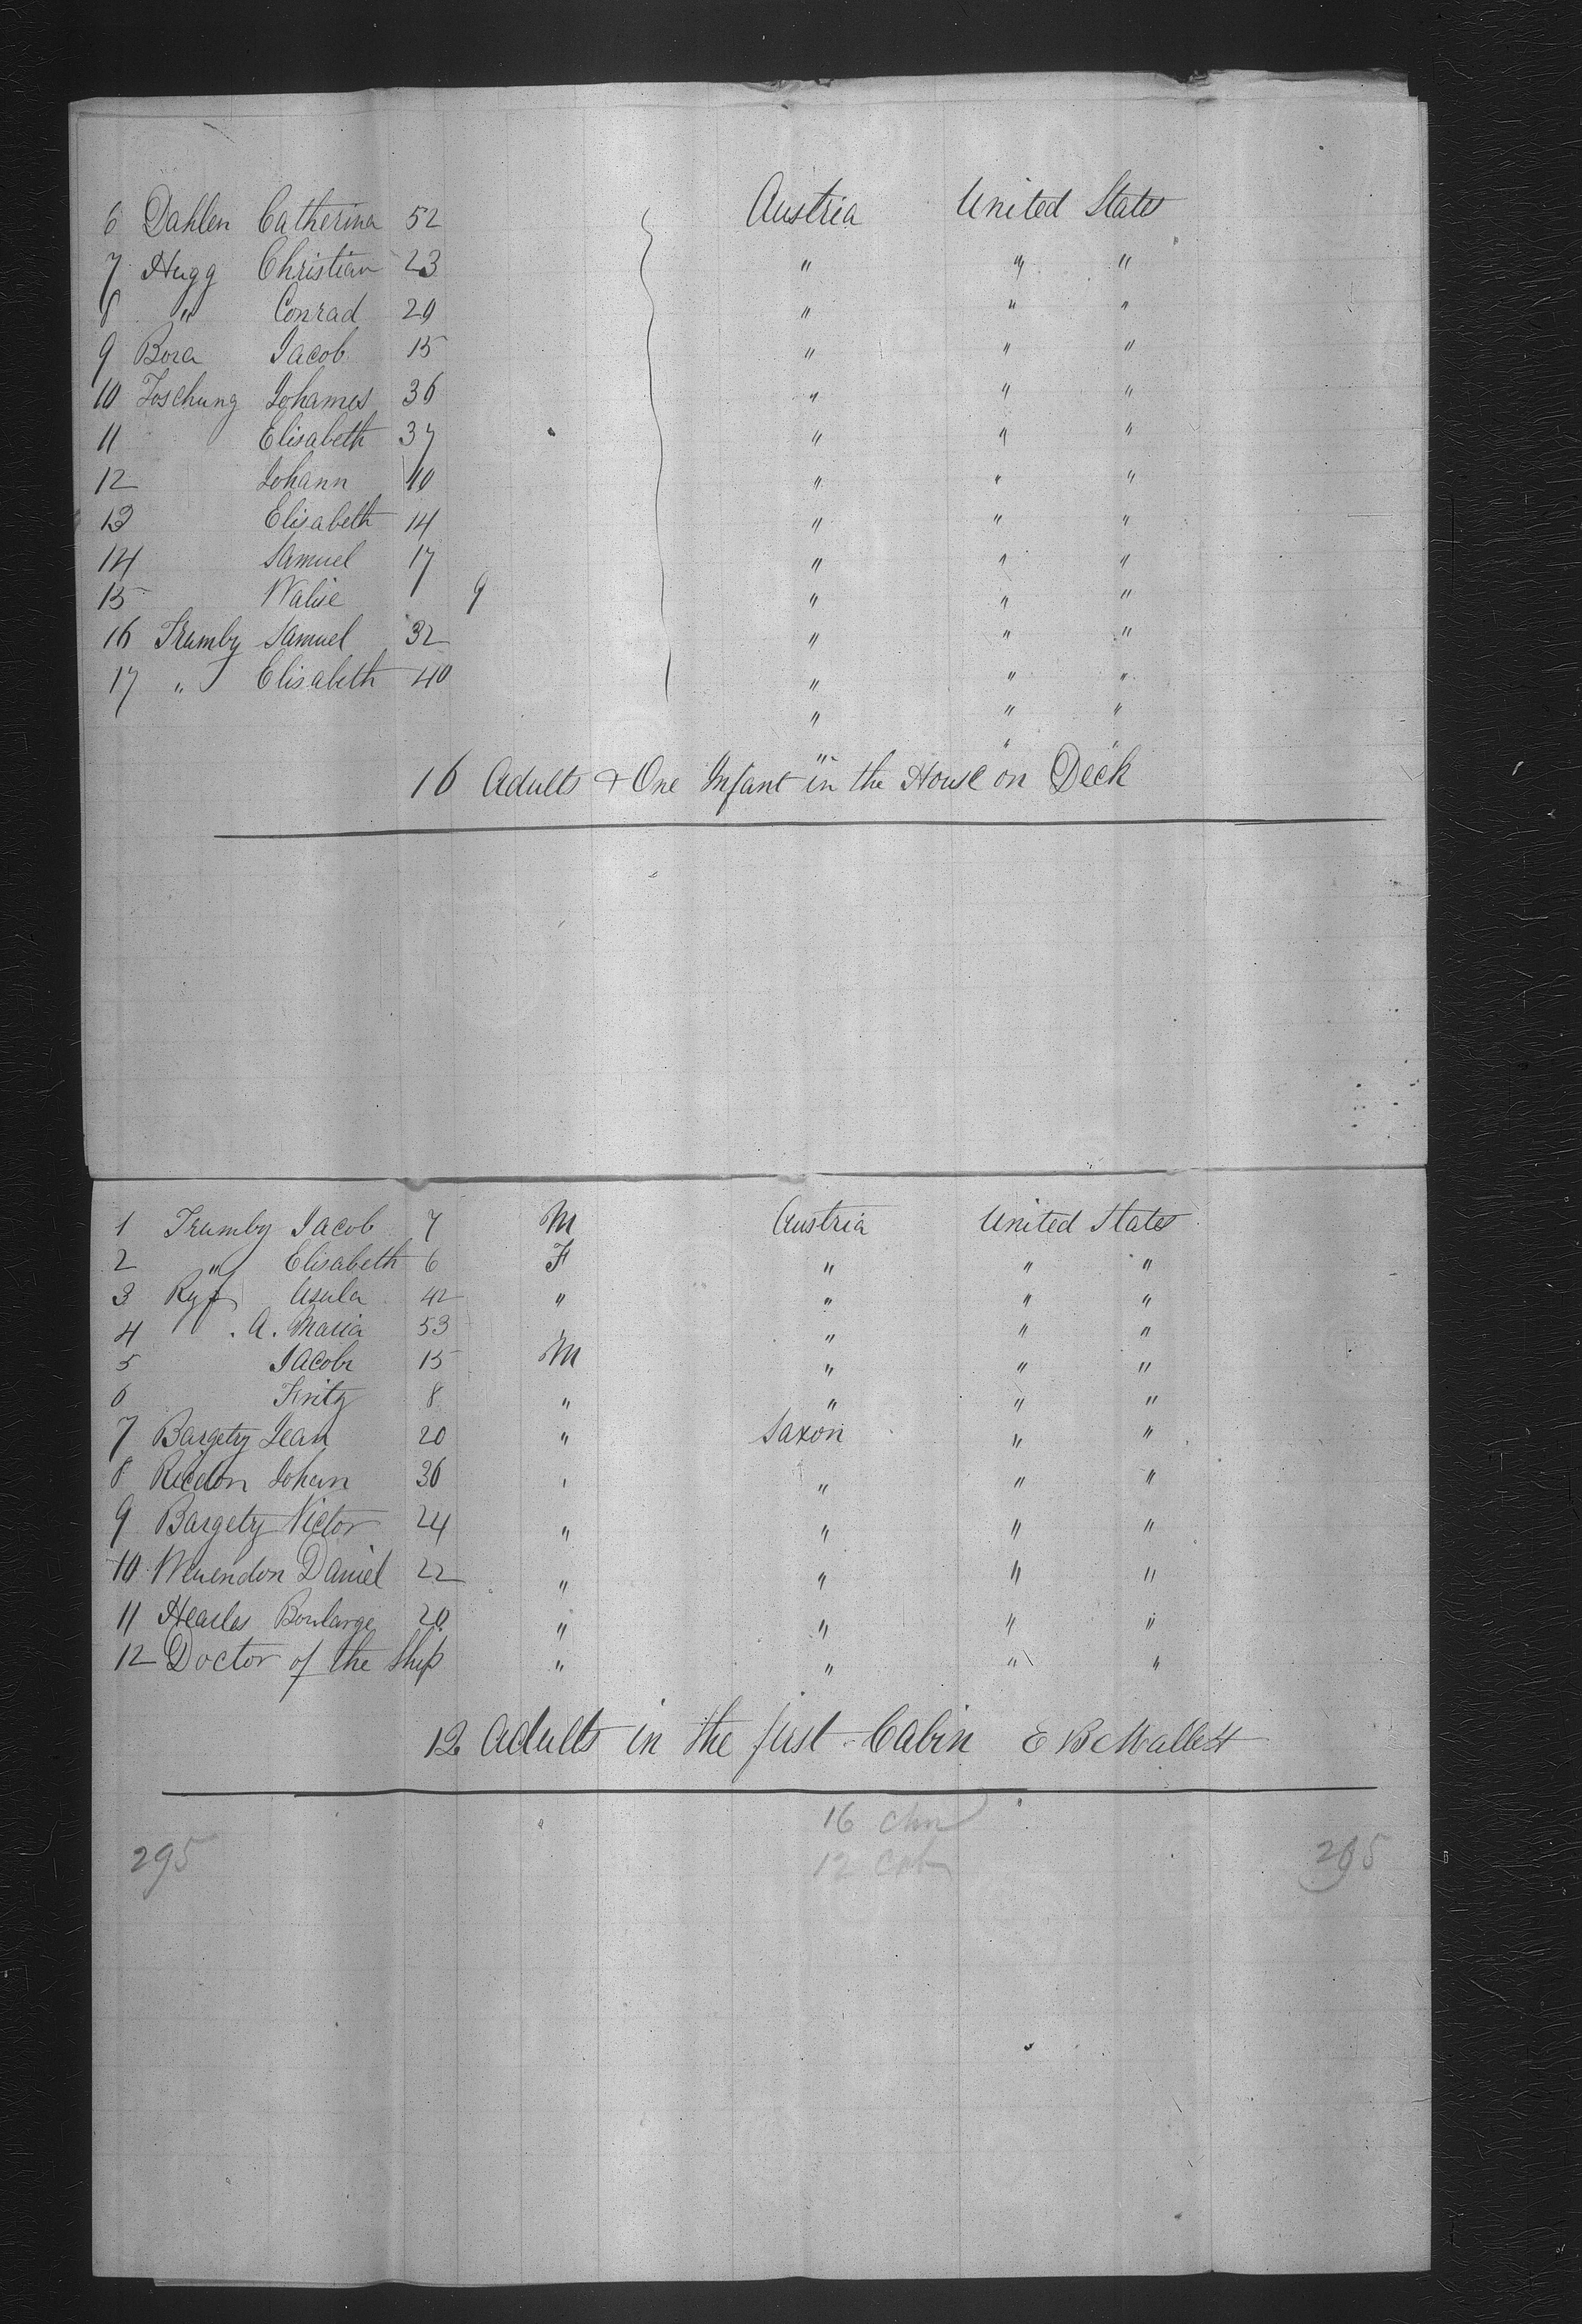 6 Dahlen Catherina 52 Austria United States
7 Hugg Christian 23 " " "
8 " Conrad 29 " " "
9 Bora Jacob 15 " " "
10 Joschung Johames 36 " " "
11 Elisabeth 37 " " "
12 Johann 40 " " "
13 Elisabeth 14 " " "
14 Samuel 17 " " "
15 Walise 9 " " "
16 Trumby Samuel 32 " " "
17 " Elisabeth 40 " " "
" " "
" " "
16 Adults & One Infant in the House on Deck
1 Trumby Jacob 7 M Austria United States
2 " Elisabeth 6 F " " "
3 Ryf Usula 42 " " " "
4 A. Maria 53 " " " "
5 Jacob 15 M " " "
6 Fritz 8 " " " "
7 Bargety Jean 20 " Saxon " "
8 Riedon Johan 36 " " " "
9 Bargety Victor 24 " " " "
10 Wuendon Daniel 22 " " " "
11 Heacles Boularge 20 " " " "
12 Doctor of the Ship " " " "
12 Adults in the first Cabin E B Mallett
16 chn
295 12 cab 295